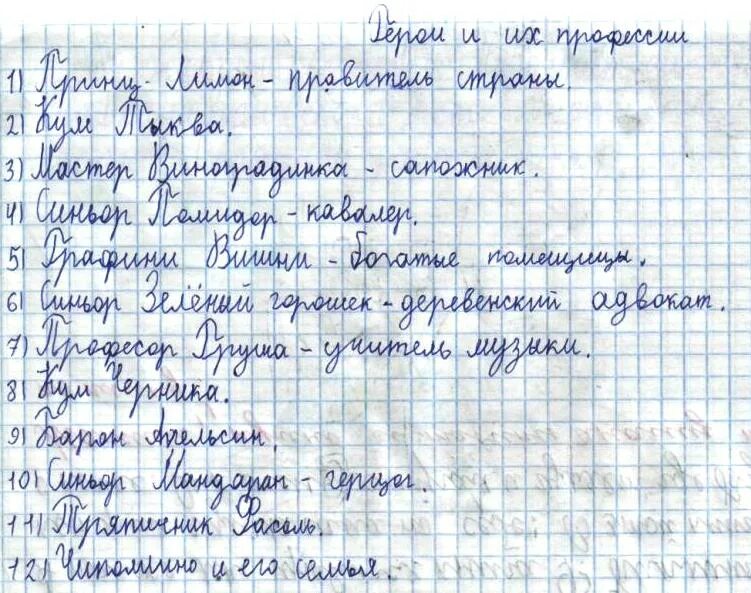 Герои и их профессии
1) Принц-Лимон - правитель страны.
2) Кум Тыква.
3) Мастер Виноградинка - сапожник.
4) Синьор Помидор - кавалер.
5) Графини Вишни - богатые помещицы.
6) Синьор Зелёный горошек - деревенский адвокат.
7) Професор Груша - учитель музыки.
8) Кум Черника.
9) Барон Апельсин.
10) Синьор Мандаран - герцог.
11) Тряпичник Фасоль.
12) Чиполлино и его семья.